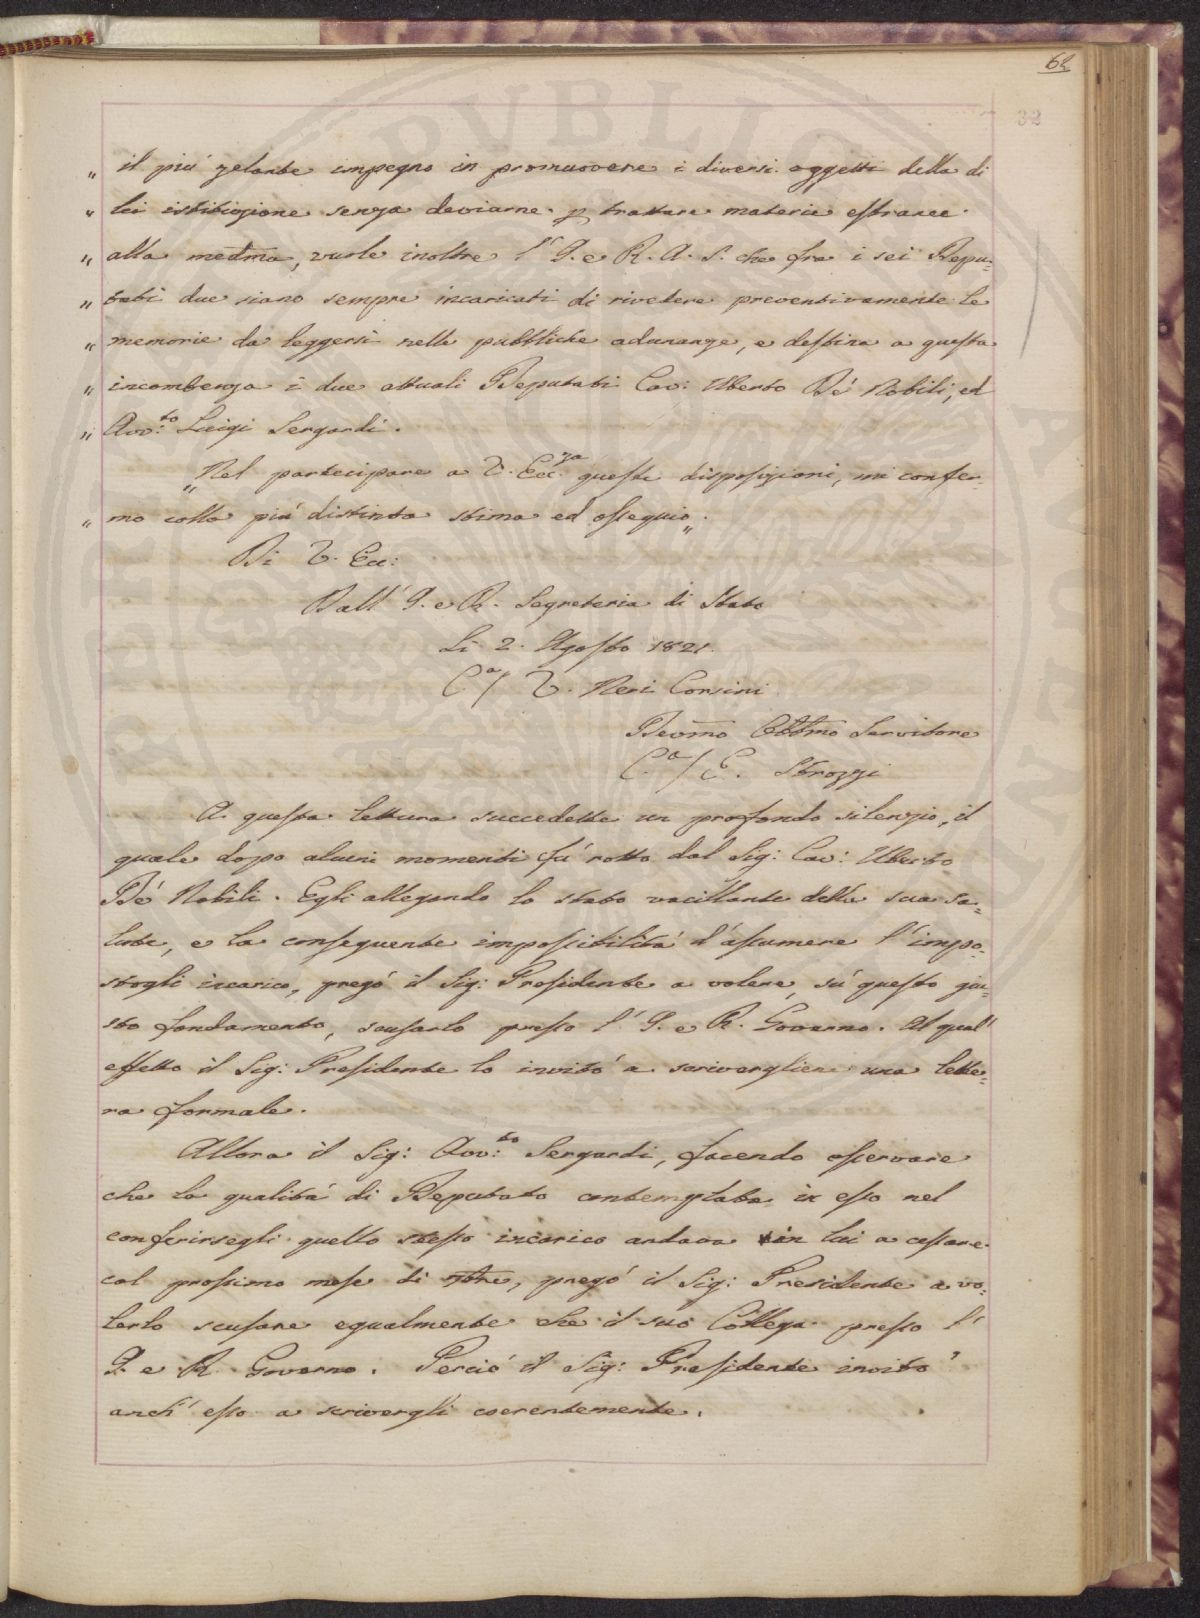 62
32
„ il piú zelante impegno in promuovere i diversi oggetti della di
„ lei istituzione senza deviarne p trattare materie estranee
„ alla medma, vuole inoltre l'I. e R. A. S. che fra i sei Depu=
„ tati due siano sempre incaricati di rivedere preventivamente le
„ memorie da leggersi nelle pubbliche adunanze, e destina a questa
„ incombenza i due attuali Deputati Cav: Uberto De' Nobili, ed
„ Avv:to Luigi Sergardi.
„ Nel partecipare a V. Ecc:za queste disposizioni, mi confer=
„ mo colla piú distinta stima ed ossequio „.
Di V. Ecc:
Dall' I. e R. Segreteria di Stato
Li 2. Agosto 1821.
Ca/ V. Neri Corsini
Devmo Obbmo Servitore
C.a/ E. Strozzi
A questa lettura succedette un profondo silenzio, il
quale dopo alcuni momenti fú rotto dal Sig: Cav: Uberto
De' Nobili. Egli allegando lo stato vacillante della sua sa=
lute, e la conseguente impossibilitá d'assumere l'impo=
stogli incarico, pregó il Sig: Presidente a volere, sú questo giu=
sto fondamento, scusarlo presso l'I. e R. Governo. Al qual'
effetto il Sig: Presidente lo invitó a scriverglien una lette=
ra formale.
Allora il Sig: Avv:to Sergardi, facendo osservare
che la qualitá di Deputato contemplata in esso nel
conferirsegli quello stesso incarico andava in lui a cessare
col prossimo mese di 9bre, pregó il Sig: Presidente a vo=
lerlo scusare egualmente che il suo Collega presso l'
I. e R. Governo. Perció il Sig: Presidente invitó
anch' esso a scrivergli coerentemente.